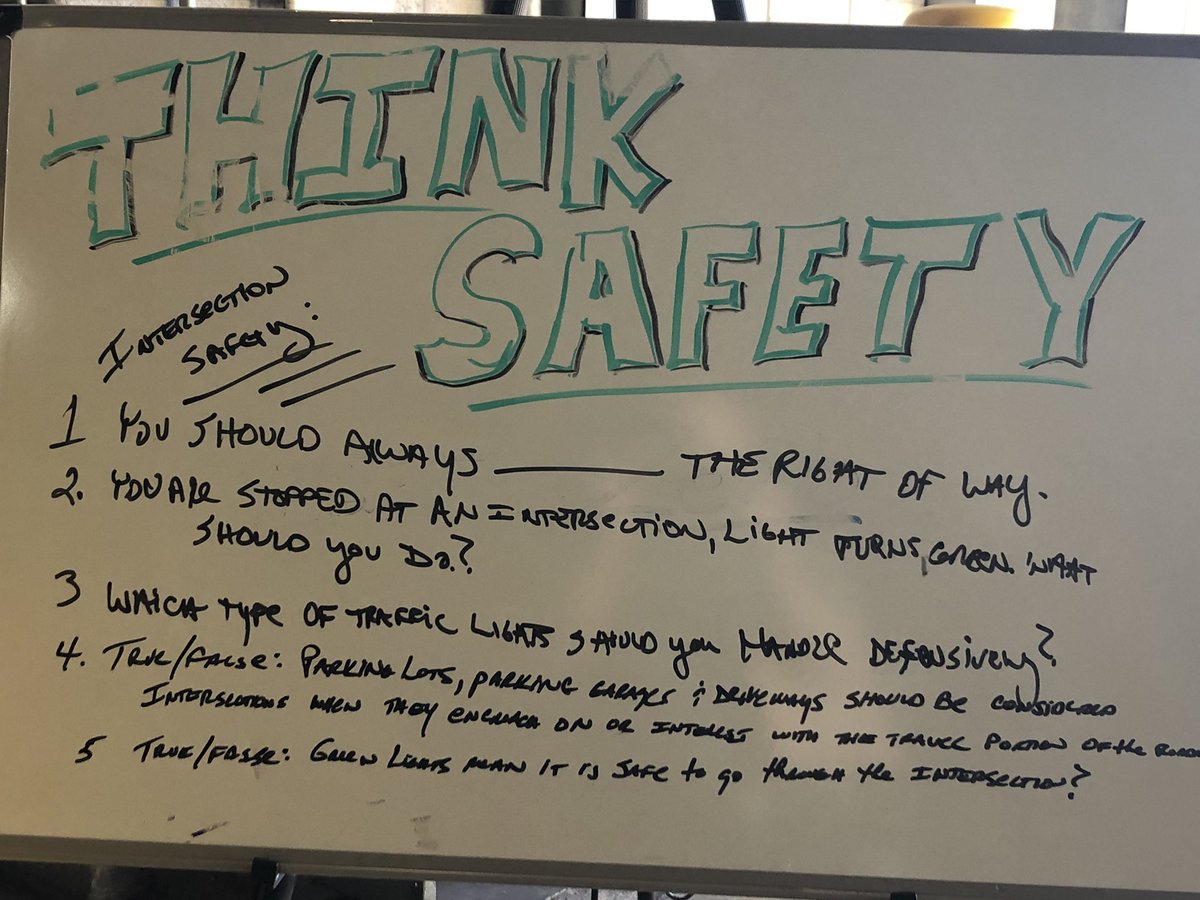 THINK
SAFETY
INTERSECTION
SAFETY:
1 YOU SHOULD ALWAYS ______ THE RIGHT OF WAY.
2. YOU ARE STOPPED AT AN INTERSECTION, LIGHT TURNS GREEN. WHAT
SHOULD you Do?
3 WHICH TYPE OF TRAFFIC LIGHTS SHOULD you HANDLE DEFENSIVELY?
4. TRUE/FALSE: PARKING LOTS, PARKING GARAGES & DRIVEWAYS SHOULD BE CONSIDERED
INTERSECTIONS WHEN THEY ENCROACH ON OR INTERSECT WITH THE TRAVEL PORTION OF the
5 TRUE/FALSE: GREEN LIGHTS MEAN IT IS SAFE to go through the INTERSECTION?